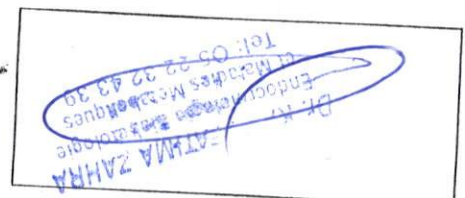 Dr. K. FATIMA ZAHRA
Endocrinologie Diabétologie
et Maladies Métaboliques
Tel: 05 22 32 43 39